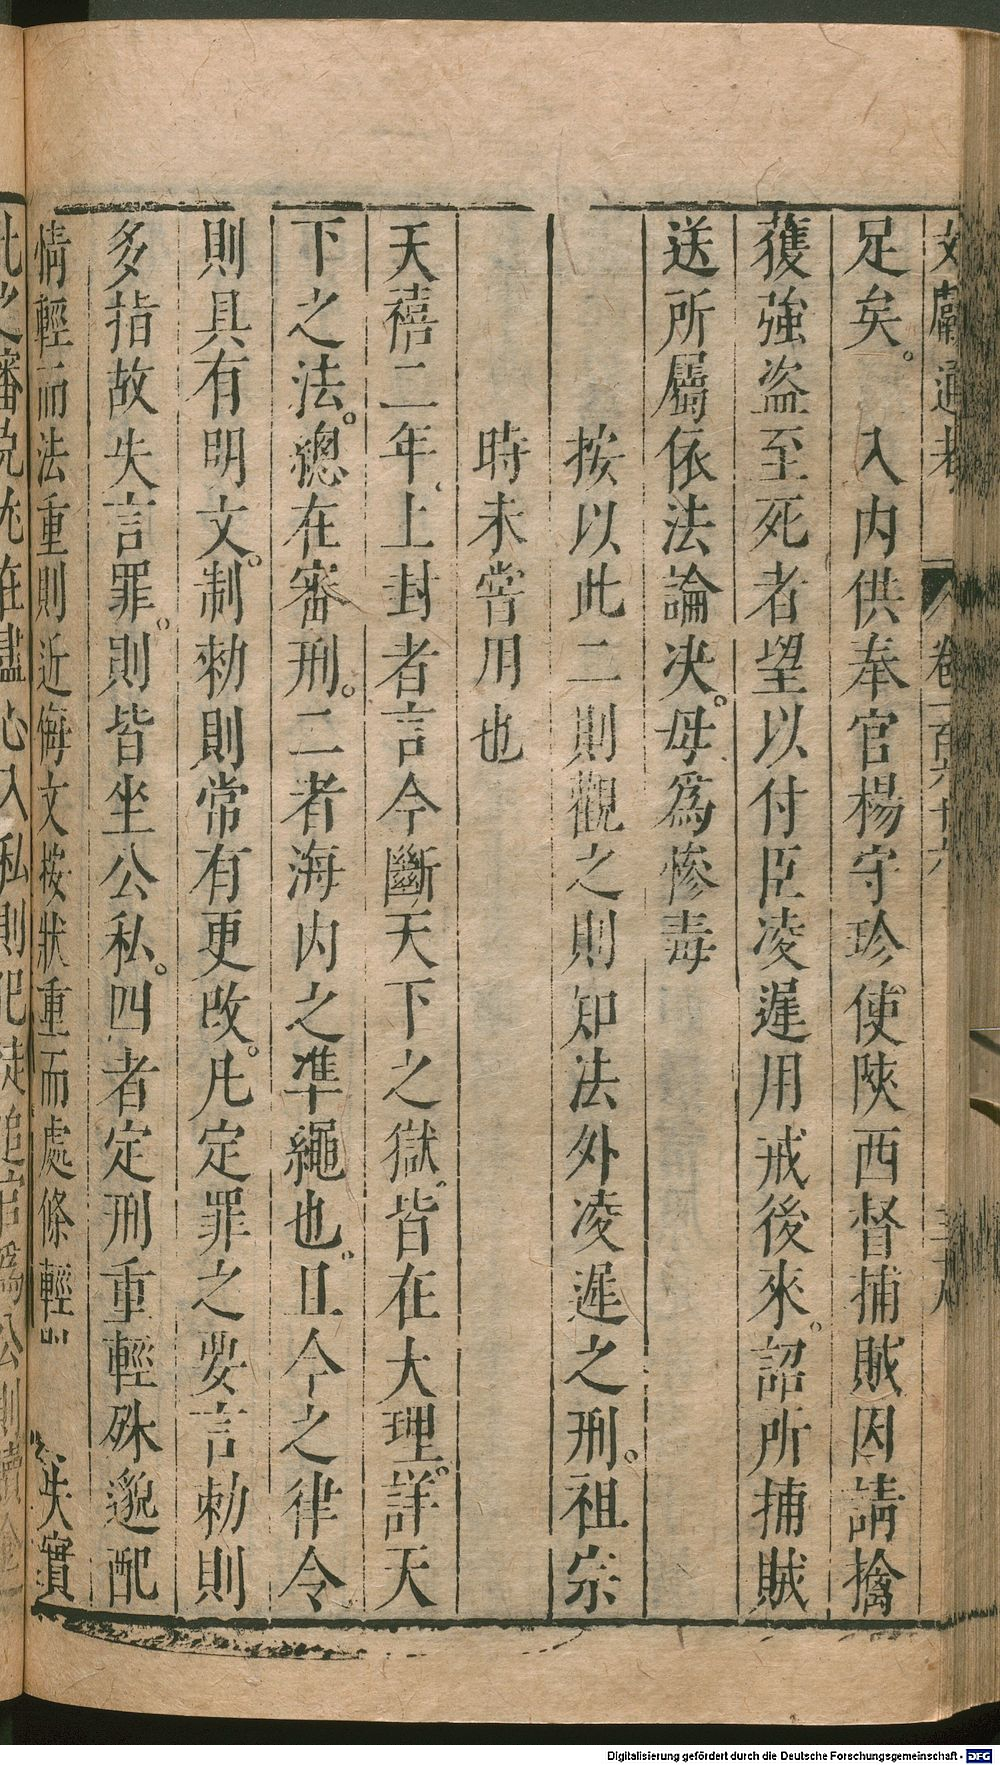 文獻通考 卷一百六十六
足矣。 入内供奉官楊守珍使陝西督捕賊因請擒
獲強盜至死者望以付臣凌遲用戒後來。詔所捕賊
送所屬依法論决。毋爲慘毒
按以此二則觀之則知法外凌遲之刑。祖宗
時未嘗用也
天禧二年、上封者言今斷天下之獄。皆在大理。詳天
下之法。總在審刑。二者海内之準繩也。且今之律令
則具有明文。制勑則常有更改。凡定罪之要言勑則
多指故失言罪。則皆坐公私。四者定刑重輕殊邈配
情輕而法重則近侮文按狀重而處條輕 失實
此之審克尤在盡心入私則犯徒追官爲公則贖金
Digitalisierung gefördert durch die Deutsche Forschungsgemeinschaft - DFG